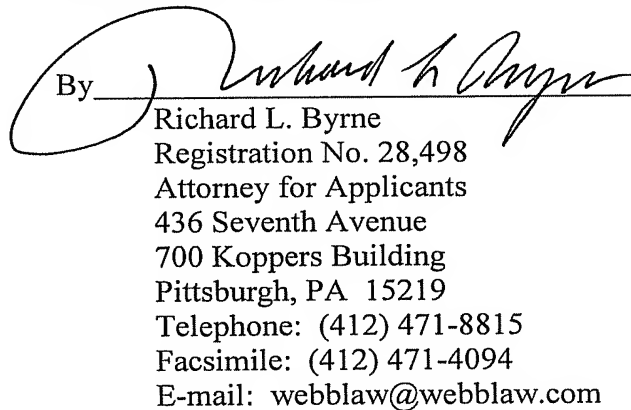 By Richard L. Byrne
Richard L. Byrne
Registration No. 28,498
Attorney for Applicants
436 Seventh Avenue
700 Koppers Building
Pittsburgh, PA 15219
Telephone: (412) 471-8815
Facsimile: (412) 471-4094
E-mail: webblaw@webblaw.com